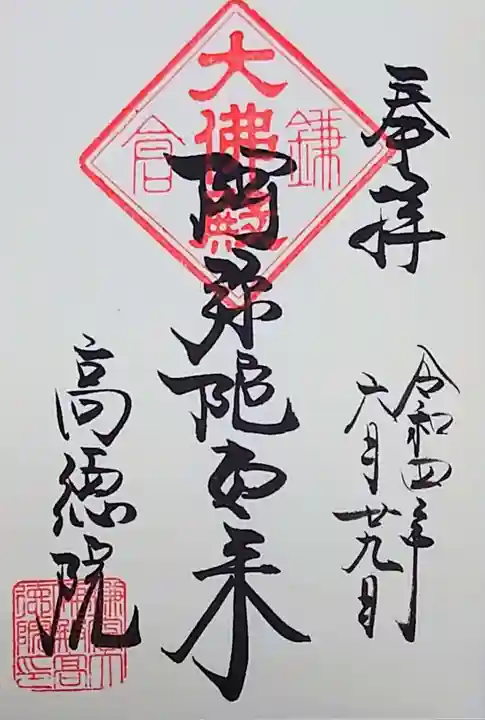 奉拝
令和四年
六月廿九日
鎌倉
大佛殿
阿弥陀如来
高徳院